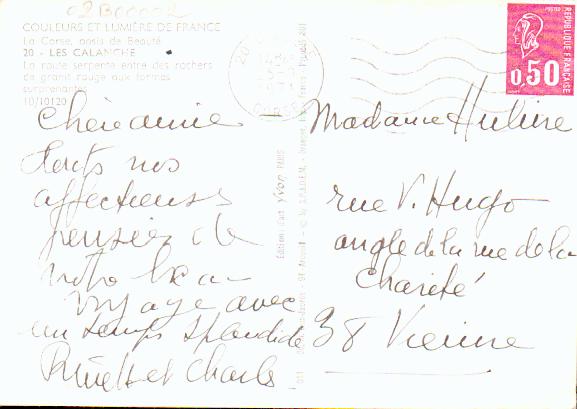 02B0000
COULEURS ET LUMIÈRE DE FRANCE
La Corse, oasis de Beauté
20 - LES CALANCHE
La route serpente entre des rochers
de granit rouge aux formes
surprenantes
10/10120
Chère amie
toutes nos
affectueuses
pensées de
notre beau
voyage avec
un temps splendide
et Charles
Édition d'art yvon PARIS
POSTES
RÉPUBLIQUE FRANÇAISE
0,50
20
CORSE
Madame Huline
rue V. Hugo
angle de la rue de la
Charité
38 Vienne